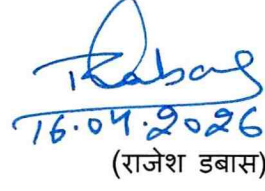 RDabas
16.04.2026
(राजेश डबास)